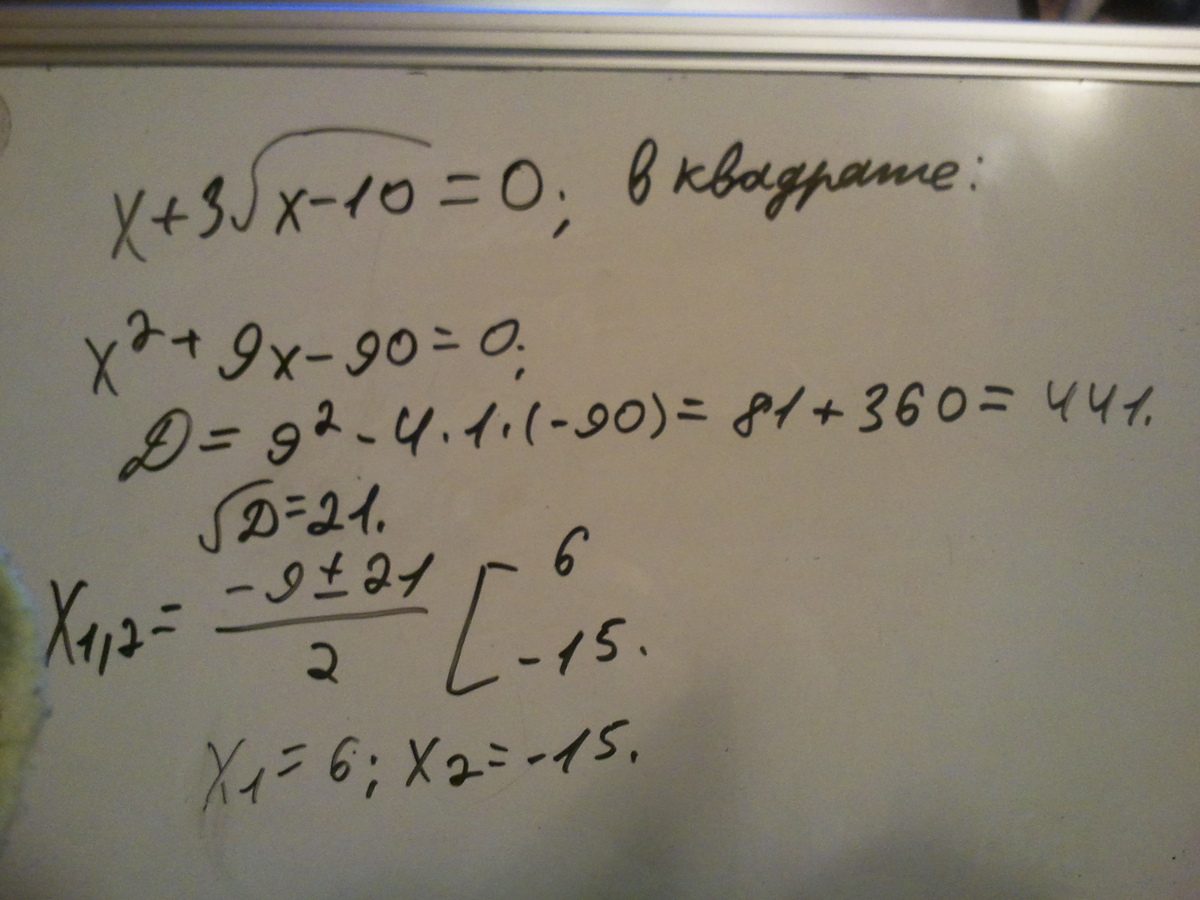 x+3√x-10 = 0; в квадрате:
x² + 9x - 90 = 0;
D = 9² - 4·1·(-90) = 81 + 360 = 441.
√D = 21.
x₁,₂ = (-9 ± 21)/2 [ 6
-15.
x₁ = 6; x₂ = -15.